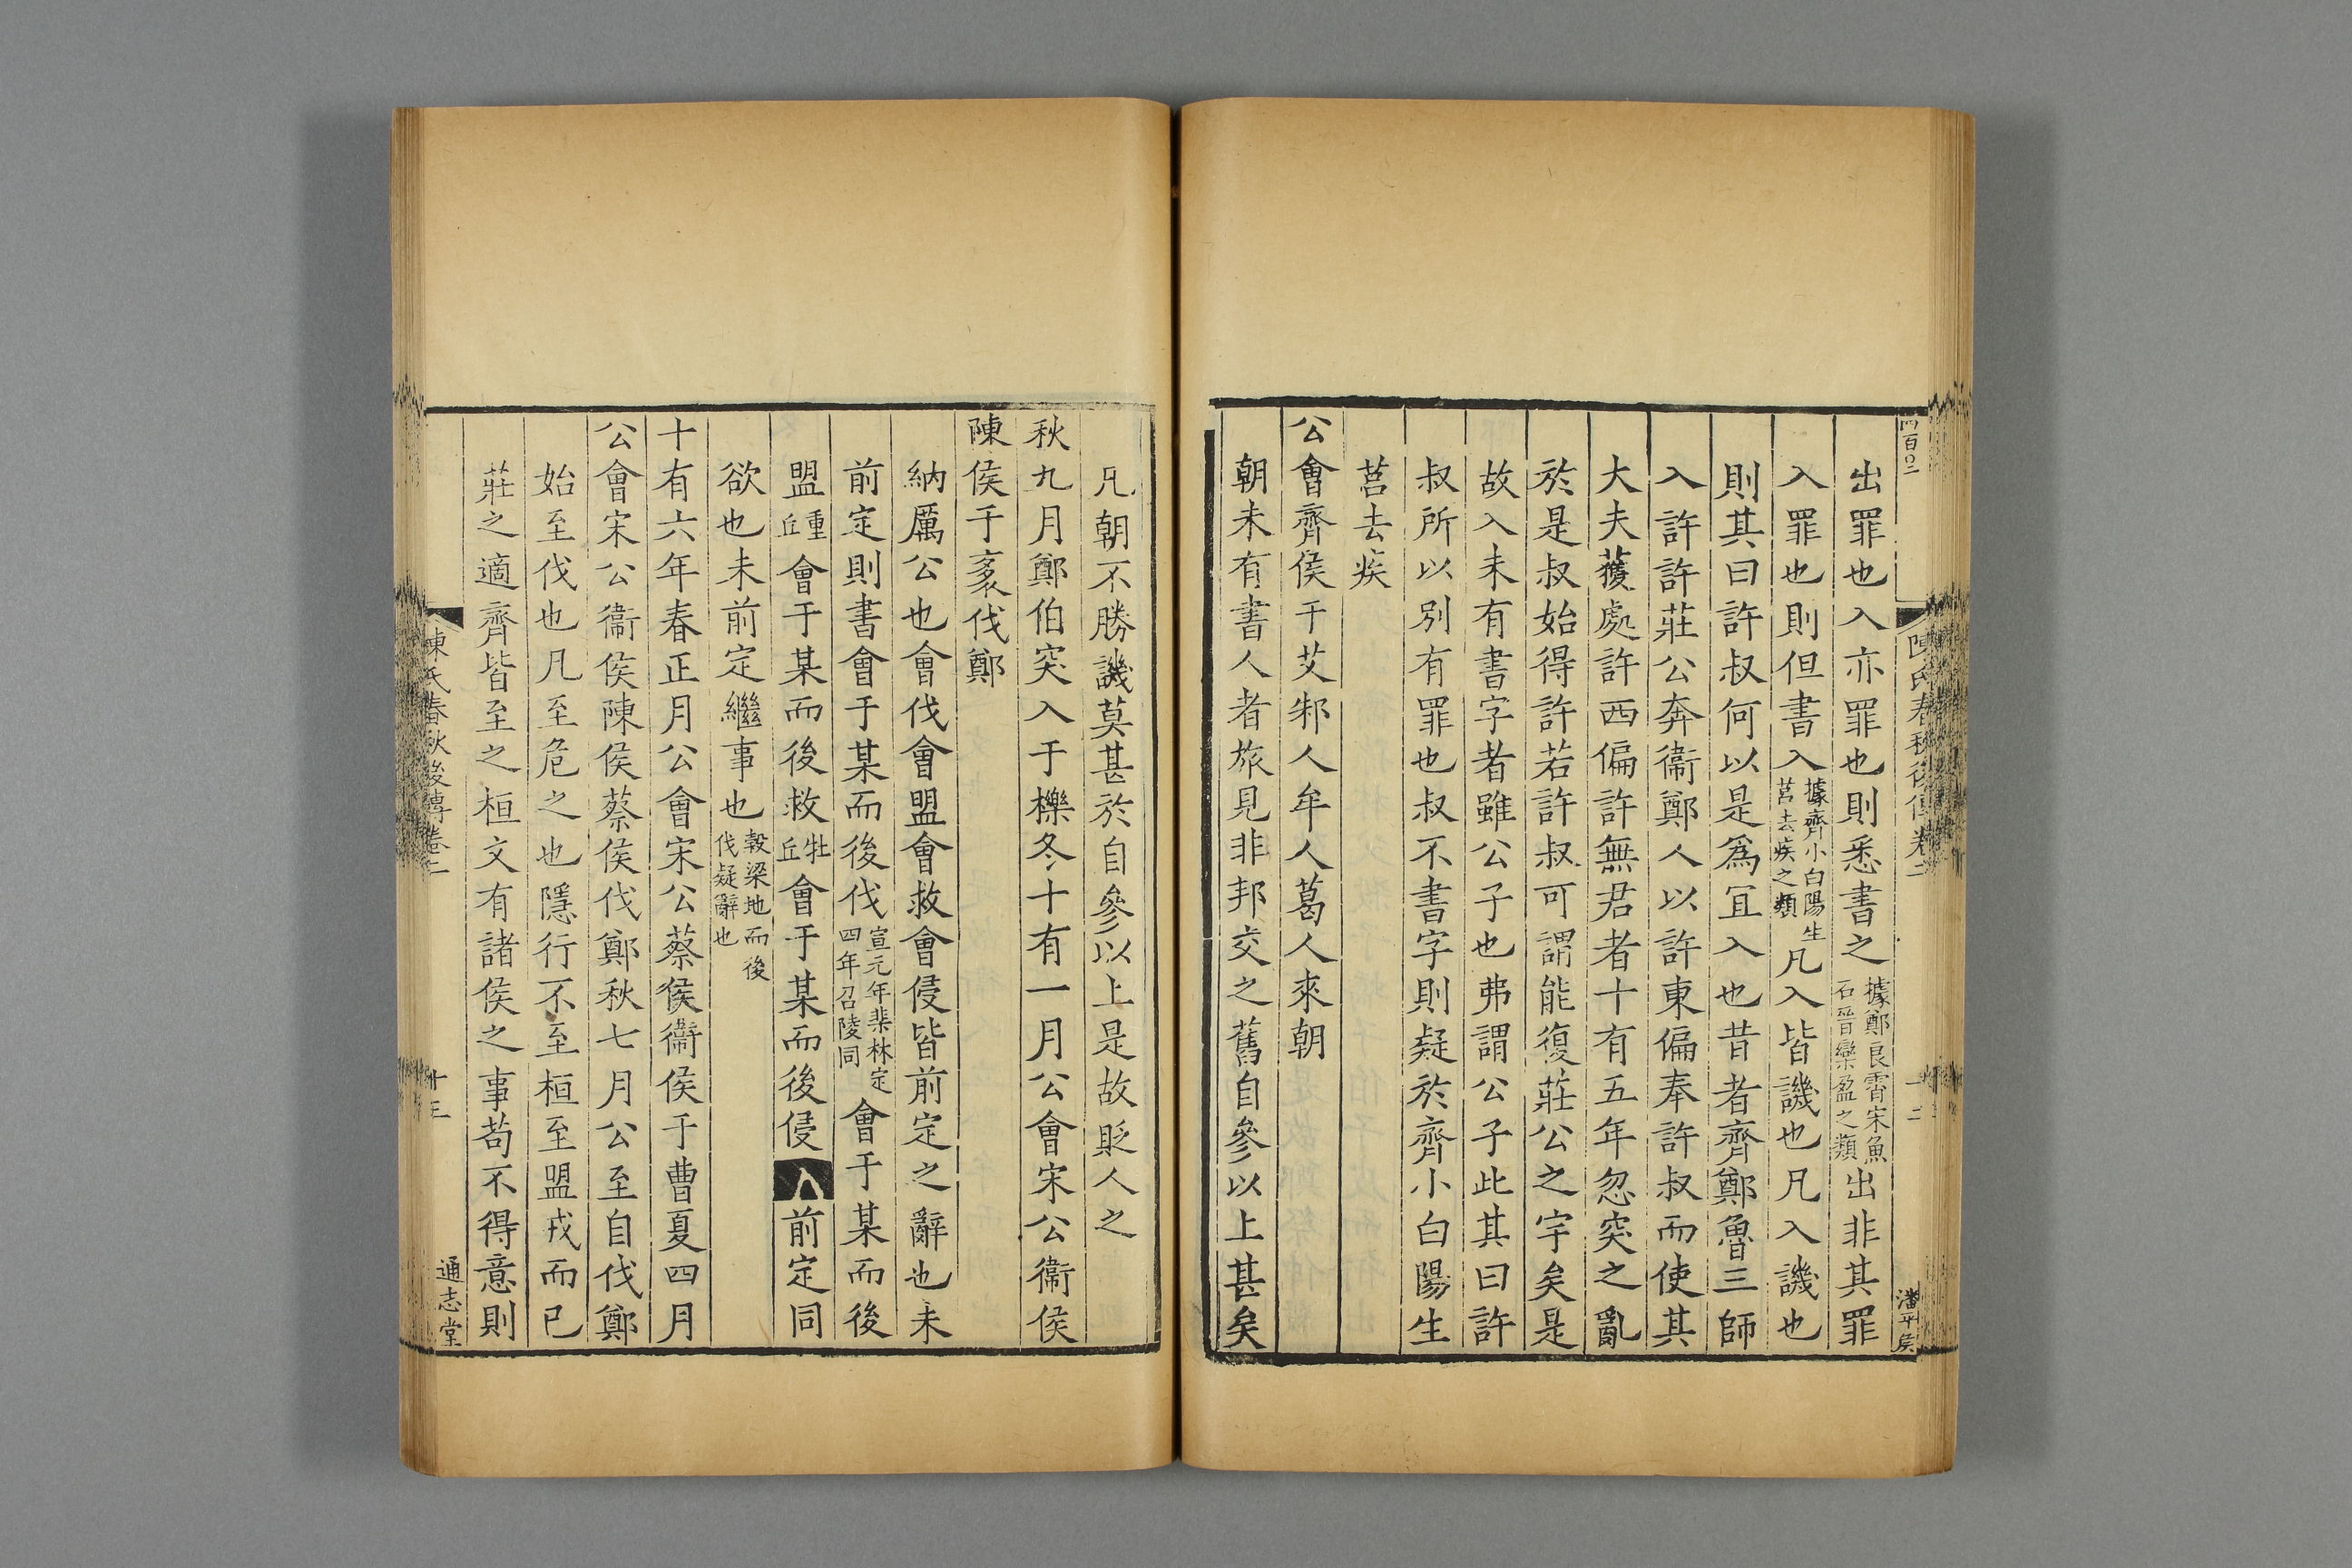 出罪也入亦罪也則悉書之據鄭良霄宋魚石晉欒盈之類出非其罪
入罪也則但書入據齊小白陽生莒去疾之類凡入皆譏也凡入譏也
則其曰許叔何以是爲冝入也昔者齊鄭魯三師
入許許莊公奔衞鄭人以許東偏奉許叔而使其
大夫獲處許西偏許無君者十有五年忽突之亂
於是叔始得許若許叔可謂能復莊公之宇矣是
故入未有書字者雖公子也弗謂公子此其曰許
叔所以別有罪也叔不書字則疑於齊小白陽生
莒去疾
公會齊侯于艾邾人牟人葛人來朝
朝未有書人者旅見非邦交之舊自參以上甚矣
潘平侯
凡朝不勝譏莫甚於自參以上是故貶人之
秋九月鄭伯突入于櫟冬十有一月公會宋公衞侯
陳侯于袲伐鄭
納厲公也會伐會盟會救會侵皆前定之辭也未
前定則書會于某而後伐宣元年棐林定四年召陵同會于某而後
盟重丘會于某而後救牡丘會于某而後侵前定同
欲也未前定繼事也穀梁地而後伐疑辭也
十有六年春正月公會宋公蔡侯衞侯于曹夏四月
公會宋公衞侯陳侯蔡侯伐鄭秋七月公至自伐鄭
始至伐也凡至危之也隱行不至桓至盟戎而已
莊之適齊皆至之桓文有諸侯之事苟不得意則
陳氏春秋後傳卷二
十三
通志堂